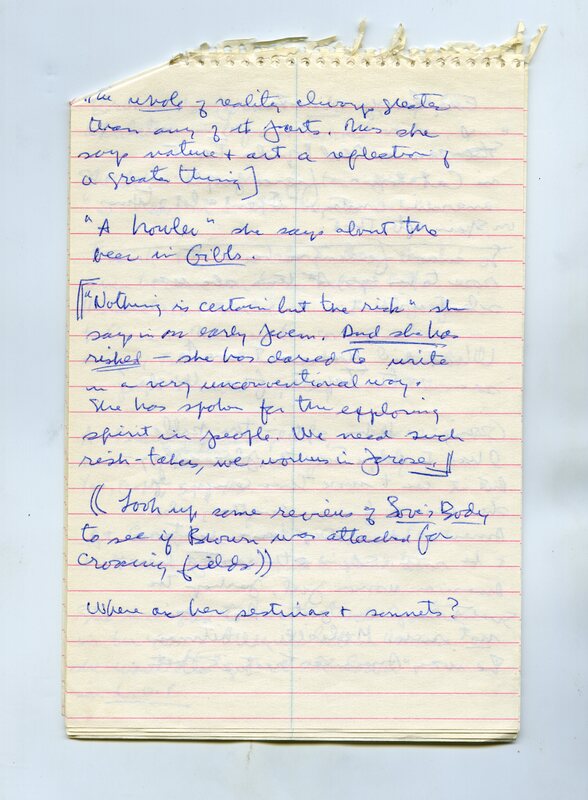 The whole of reality always greater
than any of it parts. Thus she
says nature + art a reflection of
a greater thing]
"A howler" she says about the
in Gibbs.
["Nothing is certain but the risk" she
says in an early poem. And she has
risked — she has dared to write
in a very unconventional way.
She has spoken for the exploring
spirit in people. We need such
risk-takers, we workers in prose.]
(( Look up some reviews of Love's Body
to see if Brown was attacked for
crossing fields))
Where are her sestinas + sonnets?